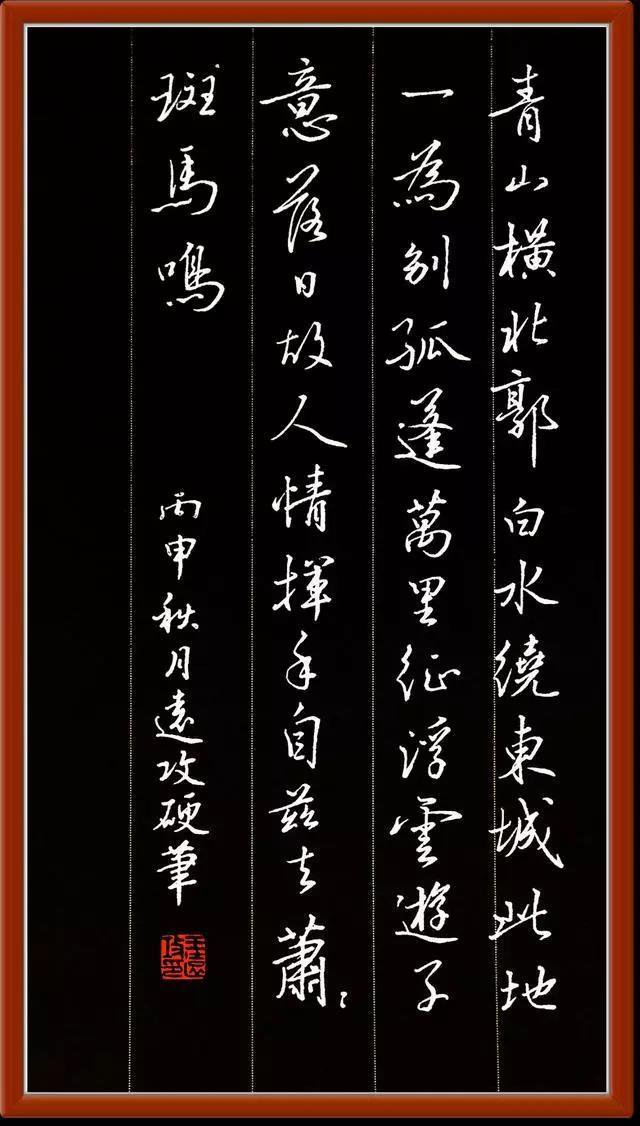 青山橫北郭白水繞東城此地
一為别孤蓬萬里征浮雲遊子
意落日故人情揮手自兹去蕭〻
斑馬鳴
丙申秋月遠攻硬筆